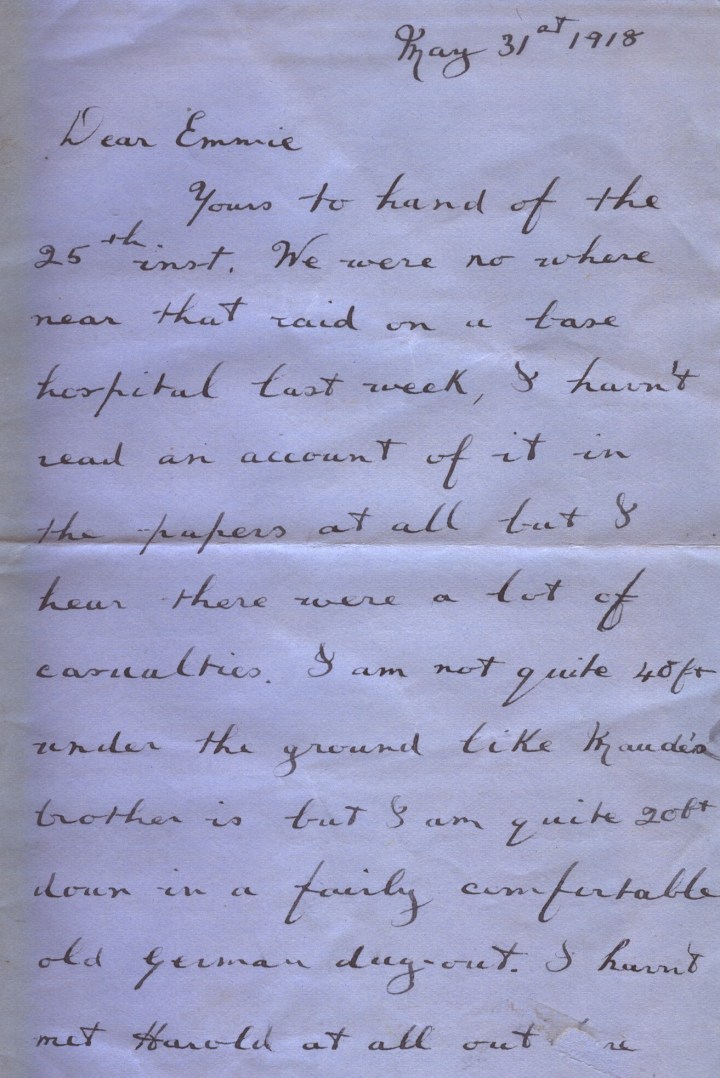 May 31st 1918
Dear Emmie
Yours to hand of the
25th inst. We were no where
near that raid on a base
hospital last week, I havn't
read an account of it in
the papers at all but I
hear there were a lot of
casualties. I am not quite 40ft
under the ground like Maude's
brother is but I am quite 20ft
down in a fairly comfortable
old German dug-out. I havn't
met Harold at all out